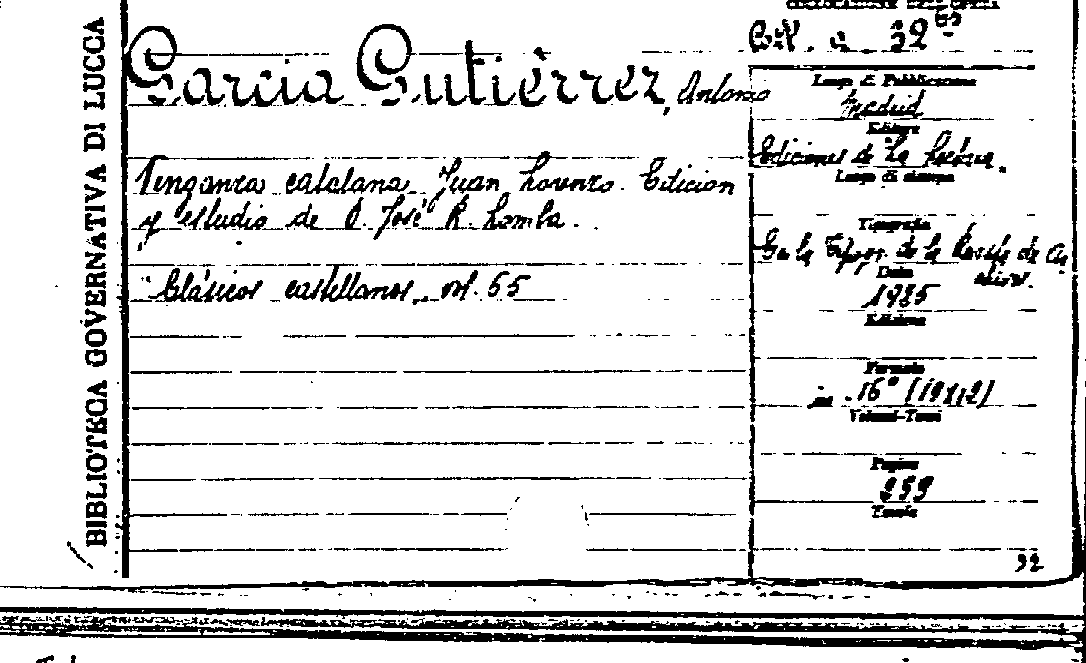 BIBLIOTECA GOVERNATIVA DI LUCCA
COLLOCAZIONE DELL'OPERA
Coll. a. 32 65
Garcia Gutiérrez, Antonio
Venganza catalana. Juan Lorenzo. Edicion
y estudio de D. José R. Lomba.
Clásicos castellanos, vol. 65
Luogo di Pubblicazione
Madrid
Editore
Ediciones de La Lectura.
Luogo di stampa
Tipografia
De la Tipogr. de la
Data
1925
Edizione
Formato
in 16° (19x12)
Volumi-Tomi
Pagine
259
Tavole
92